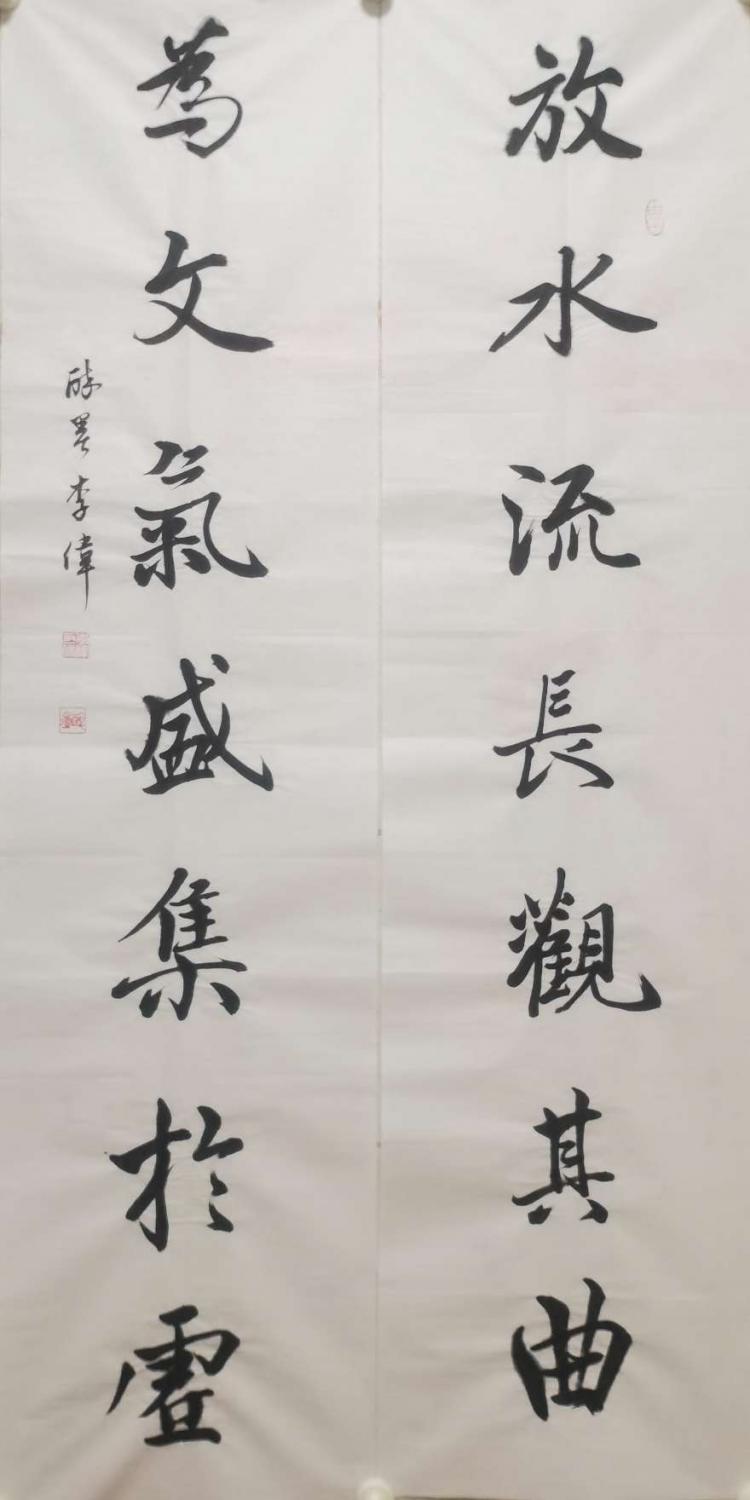 放水流長觀其曲
為文氣盛集於虛
醉墨李偉